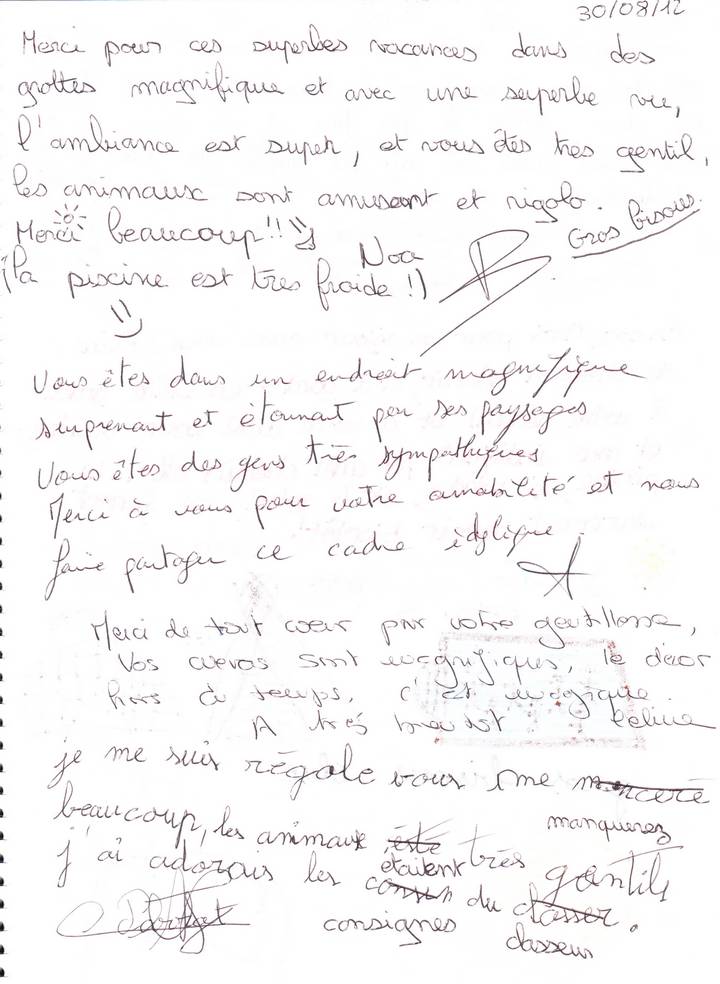 30/08/12
Merci pour ces superbes vacances dans des
grottes magnifique et avec une superbe vue,
l'ambiance est super, et vous êtes tres gentil,
les animaux sont amusant et rigolo.
Merci beaucoup!!
Gros bisous.
Noa
(la piscine est très froide !)
Vous êtes dans un endroit magnifique
surprenant et étonnat par ses paysages
Vous êtes des gens très sympathiques
Merci à vous pour votre amabilité et nous
faire partager ce cadre idylique.
Merci de tout coeur pour votre gentillesse,
Vos cuevas sont magnifiques, le décor
hors du temps, c'est magique.
A très bientôt Céline
je me suis régale vous me
beaucoup, les animaux manquerez
étaient très gentils
j'ai adorais les du
consignes classeur